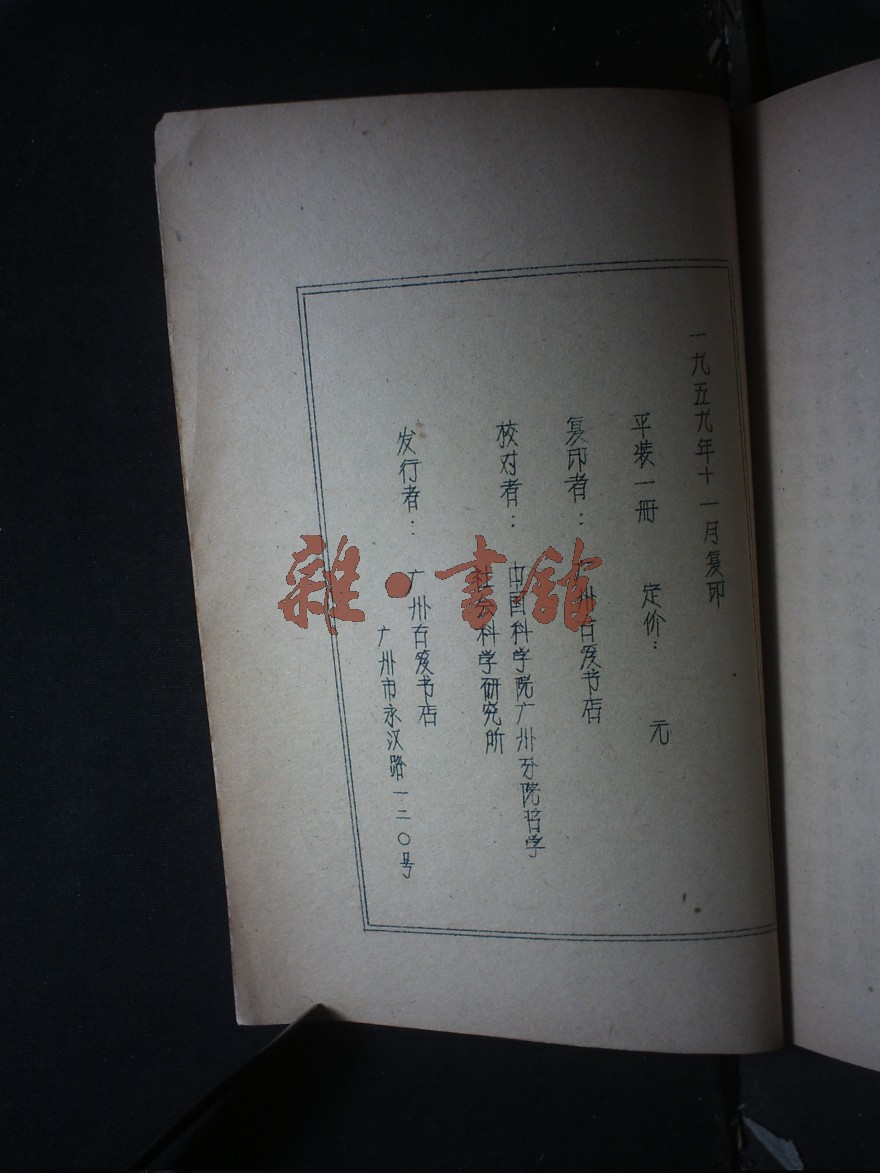 一九五九年十一月复印
平装一册 定价： 元
复印者： 广州古籍书店
校对者： 中国科学院广州分院哲学
社会科学研究所
发行者： 广州古籍书店
广州市永汉路一二〇号
雜·書館